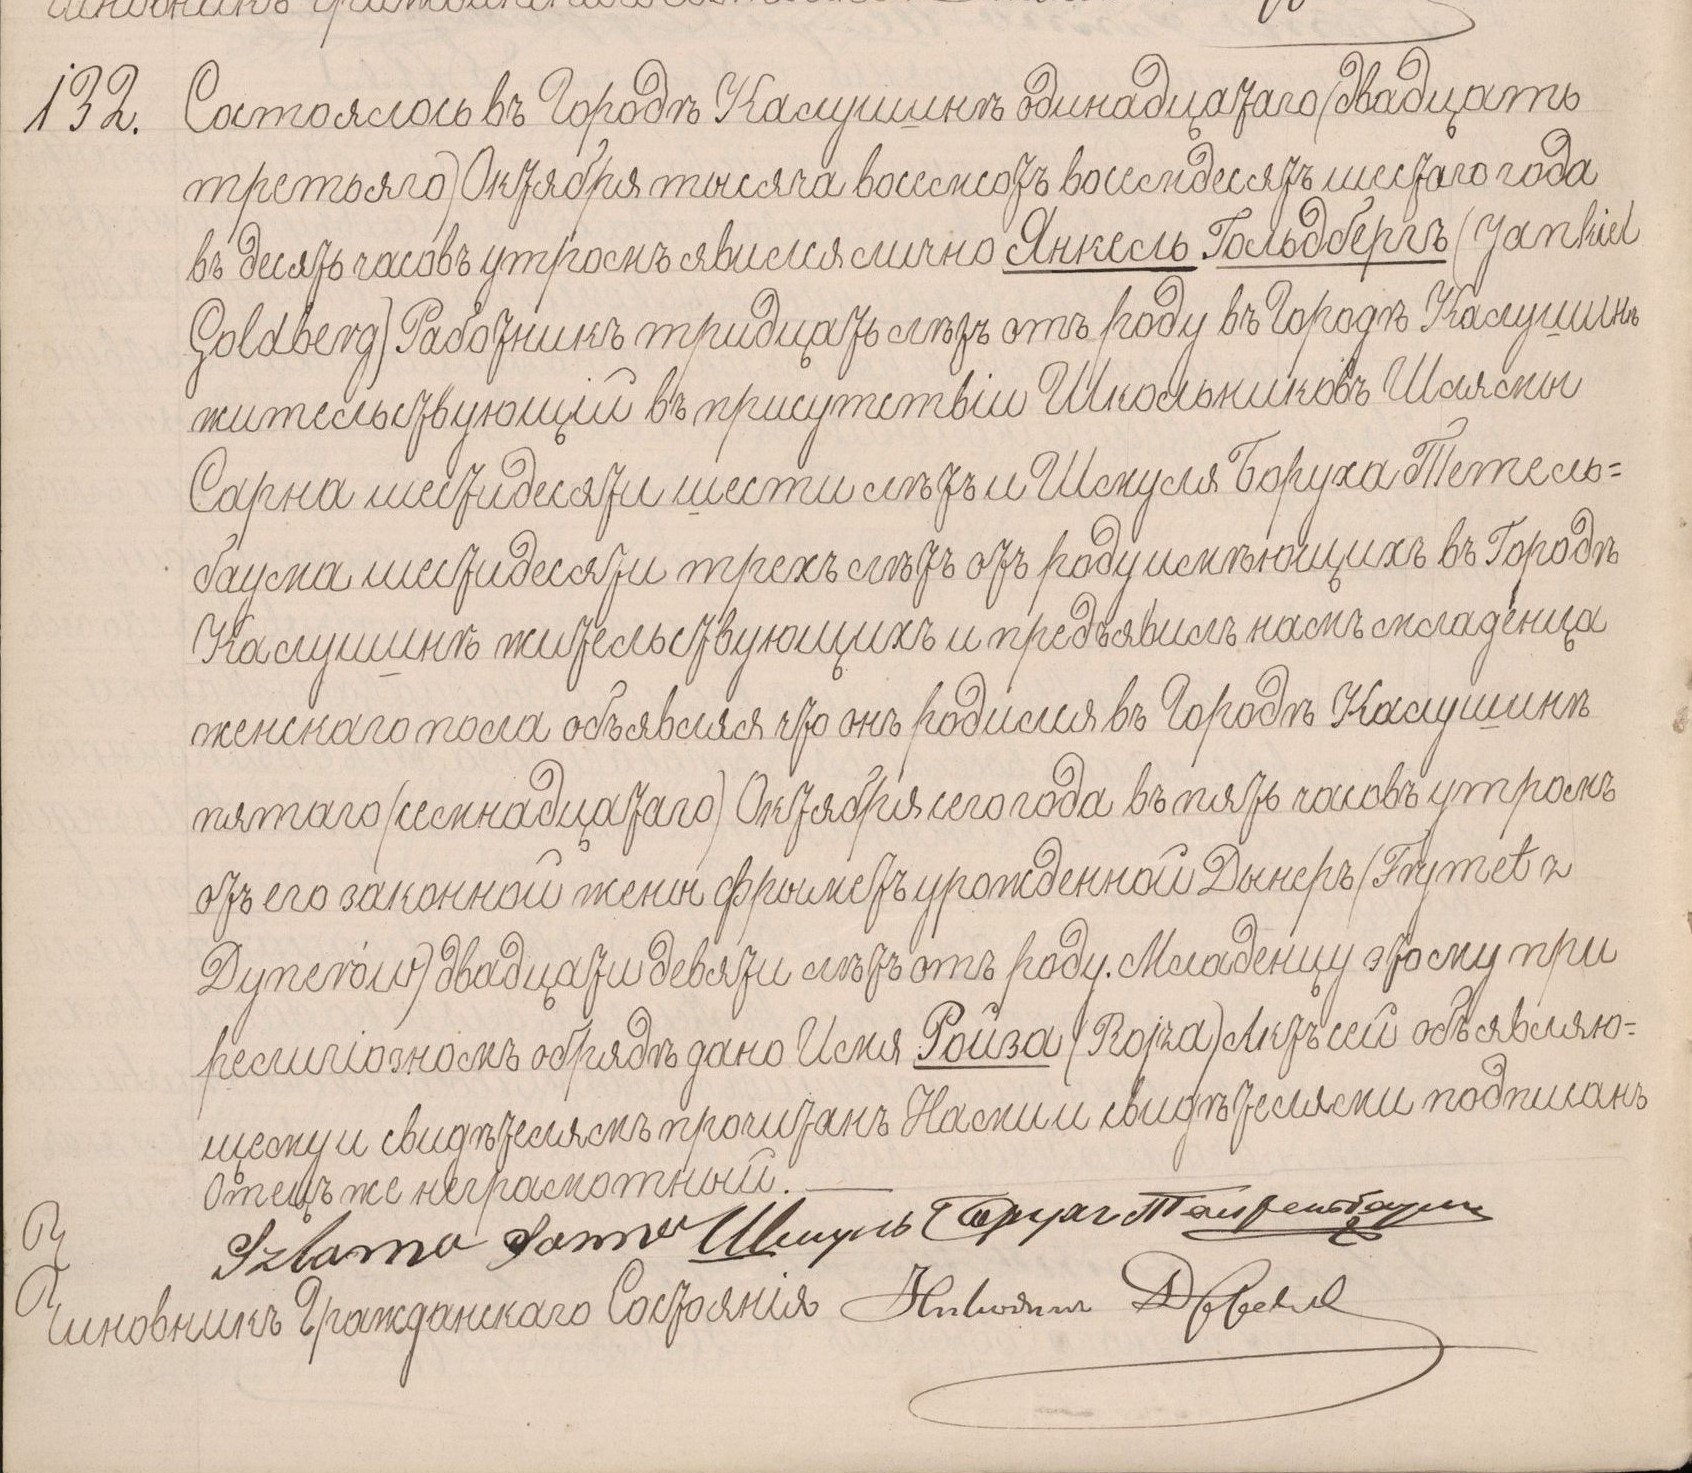 132. Состоялось въ Городѣ Калушинѣ одинадцатаго (двадцать
третьяго) Октября тысяча восемсотъ восемдесятъ шестаго года
въ десять часовъ утромъ явился лично Янкель Гольдбергъ (Yankiel
Goldberg) Работникъ тридцать лѣтъ отъ роду въ Городѣ Калушинѣ
жительствующій въ присутствіи Школьниковъ Шлямы
Сарна шестидесяти шести лѣтъ и Шмуля Боруха Тетель=
баума шестидесяти трехъ лѣтъ отъ роду имѣющихъ въ Городѣ
Калушинѣ жительствующихъ и предъявилъ намъ младенца
женскаго пола объявляя что онъ родился въ Городѣ Калушинѣ
пятаго (семнадцатаго) Октября сего года въ пять часовъ утромъ
отъ его законной жены Фрыметъ урожденной Дынеръ (Frymet z
Dynerów) двадцати девяти лѣтъ отъ роду. Младенцу этому при
религіозномъ обрядѣ дано Имя Ройза (Rojza) Актъ сей объявляю=
щему и свидѣтелямъ прочитанъ Нами и свидѣтелями подписанъ
Отецъ же неграмотный.
Szlama Sarna Шмуль Борухъ Тейтельбаумъ
Чиновникъ Гражданскаго Состоянія